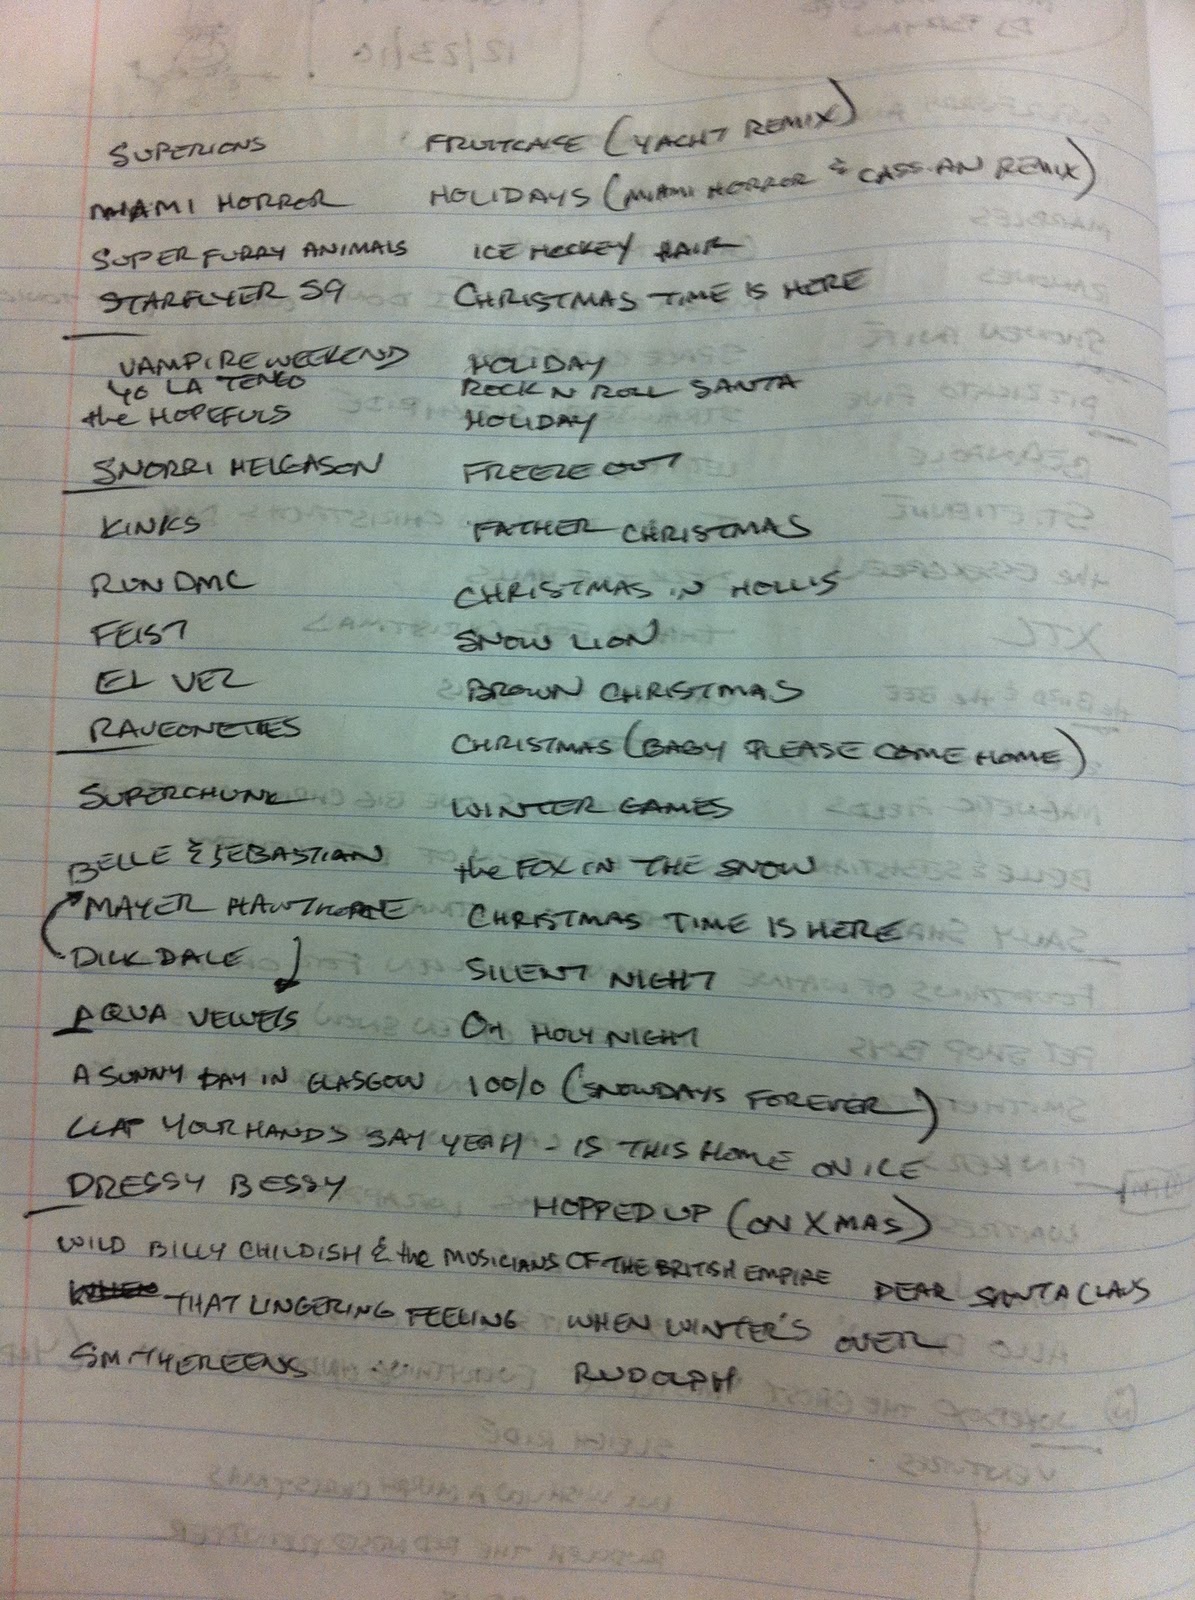 SUPERIONS FRUITCAKE (YACHT REMIX)
MIAMI HORROR HOLIDAYS (MIAMI HORROR & CASSIAN REMIX)
SUPER FURRY ANIMALS ICE HOCKEY HAIR
STARFLYER 59 CHRISTMAS TIME IS HERE
VAMPIRE WEEKEND HOLIDAY
YO LA TENGO ROCK N ROLL SANTA
the HOPEFULS HOLIDAY
SNORRI HELGASON FREEZE OUT
KINKS FATHER CHRISTMAS
RUN DMC CHRISTMAS IN HOLLIS
FEIST SNOW LION
EL VEZ BROWN CHRISTMAS
RAVEONETTES CHRISTMAS (BABY PLEASE COME HOME)
SUPERCHUNK WINTER GAMES
BELLE & SEBASTIAN the FOX IN THE SNOW
MAYER HAWTHORNE CHRISTMAS TIME IS HERE
DICK DALE SILENT NIGHT
AQUA VELVETS OH HOLY NIGHT
A SUNNY DAY IN GLASGOW 100% (SNOWDAYS FOREVER)
CLAP YOUR HANDS SAY YEAH - IS THIS HOME ON ICE
DRESSY BESSY HOPPED UP (ON XMAS)
WILD BILLY CHILDISH & the MUSICIANS OF THE BRITISH EMPIRE DEAR SANTA CLAUS
THAT LINGERING FEELING WHEN WINTER'S OVER
SMITHEREENS RUDOLPH